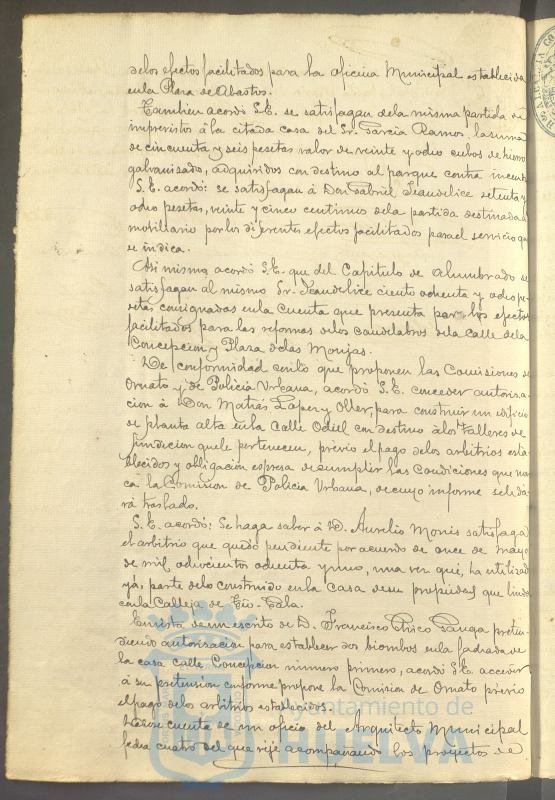 delos efectos facilitados para la oficina Municipal establecida
en la Plaza de Abastos.
Tambien acordó S.E. se satisfagan dela misma partida de
imprevistos á la citada casa del Sr. Garcia Ramos, la suma
de cincuenta y seis pesetas valor de veinte y ocho cubos de hierro
galvanizado, adquiridos con destino al parque contra incen
S. E. acordó: se satisfagan á Don Gabriel Jeaudelice setenta y
ocho pesetas, veinte y cinco centimos dela partida destinada a
mobiliario por los diferentes efectos facilitados para el servicio que
se indica.
Asi mismo acordó S.E. que del Capitulo de alumbrado se
satisfagan al mismo Sr. Jeaudelice ciento ochenta y ocho pe
setas consignadas en la cuenta que presenta por los efectos
facilitados para las reformas delos candelabros dela calle dela
Concepcion y Plaza delas Monjas.
De conformidad con lo que proponen las Comisiones de
Ornato y de Policia Urbana, acordó S.E. conceder autoriza
cion á Don Matias Lopez y Oller, para construir un edificio
de planta alta en la Calle Odiel con destino álos Talleres de
fundicion que le pertenecen, prévio el pago delos arbitrios esta
blecidos y obligacion espresa de cumplir las condiciones que mar
ca la Comision de Policia Urbana, de cuyo informe se le da
rá traslado.
S. E. acordó: Se haga saber á D. Aurelio Monis satisfaga
el arbitrio que quedó pendiente por acuerdo de once de mayo
de mil ochocientos ochenta y uno, una vez que, ha utilizado
yá, parte delo construido en la casa de su propiedad que linda
con la Calleja de Tio-Tala.
En vista de un escrito de D. Francisco Chico Ganga preten
diendo autorizacion para establecer dos biombos en la fachada de
la casa calle Concepcion numero primero, acordó S.E. acceder
á su pretension conforme propone la Comision de Ornato prévio
el pago delos arbitrios establecidos.
Diose cuenta de un oficio del Arquitecto Municipal
fecha cuatro del que rije acompañando los proyectos de
Ayuntamiento de
HUELVA